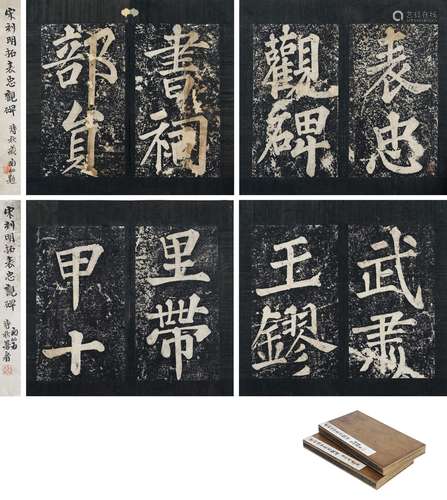 宋刻明拓表忠觀碑
表忠
觀碑
書祠
部員
宋刻明拓表忠觀碑
武肅
王鏐
里帶
甲十
艺狐在线